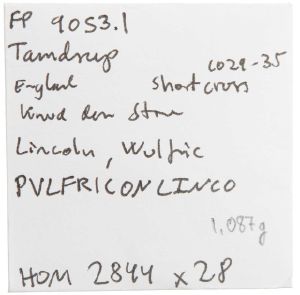 FP 9053.1
Tamdrup
1029-35
England Shortcross
Knud den Store
Lincoln, Wulfric
PVLFRICONLINCO
1,087g
HOM 2844 x 28